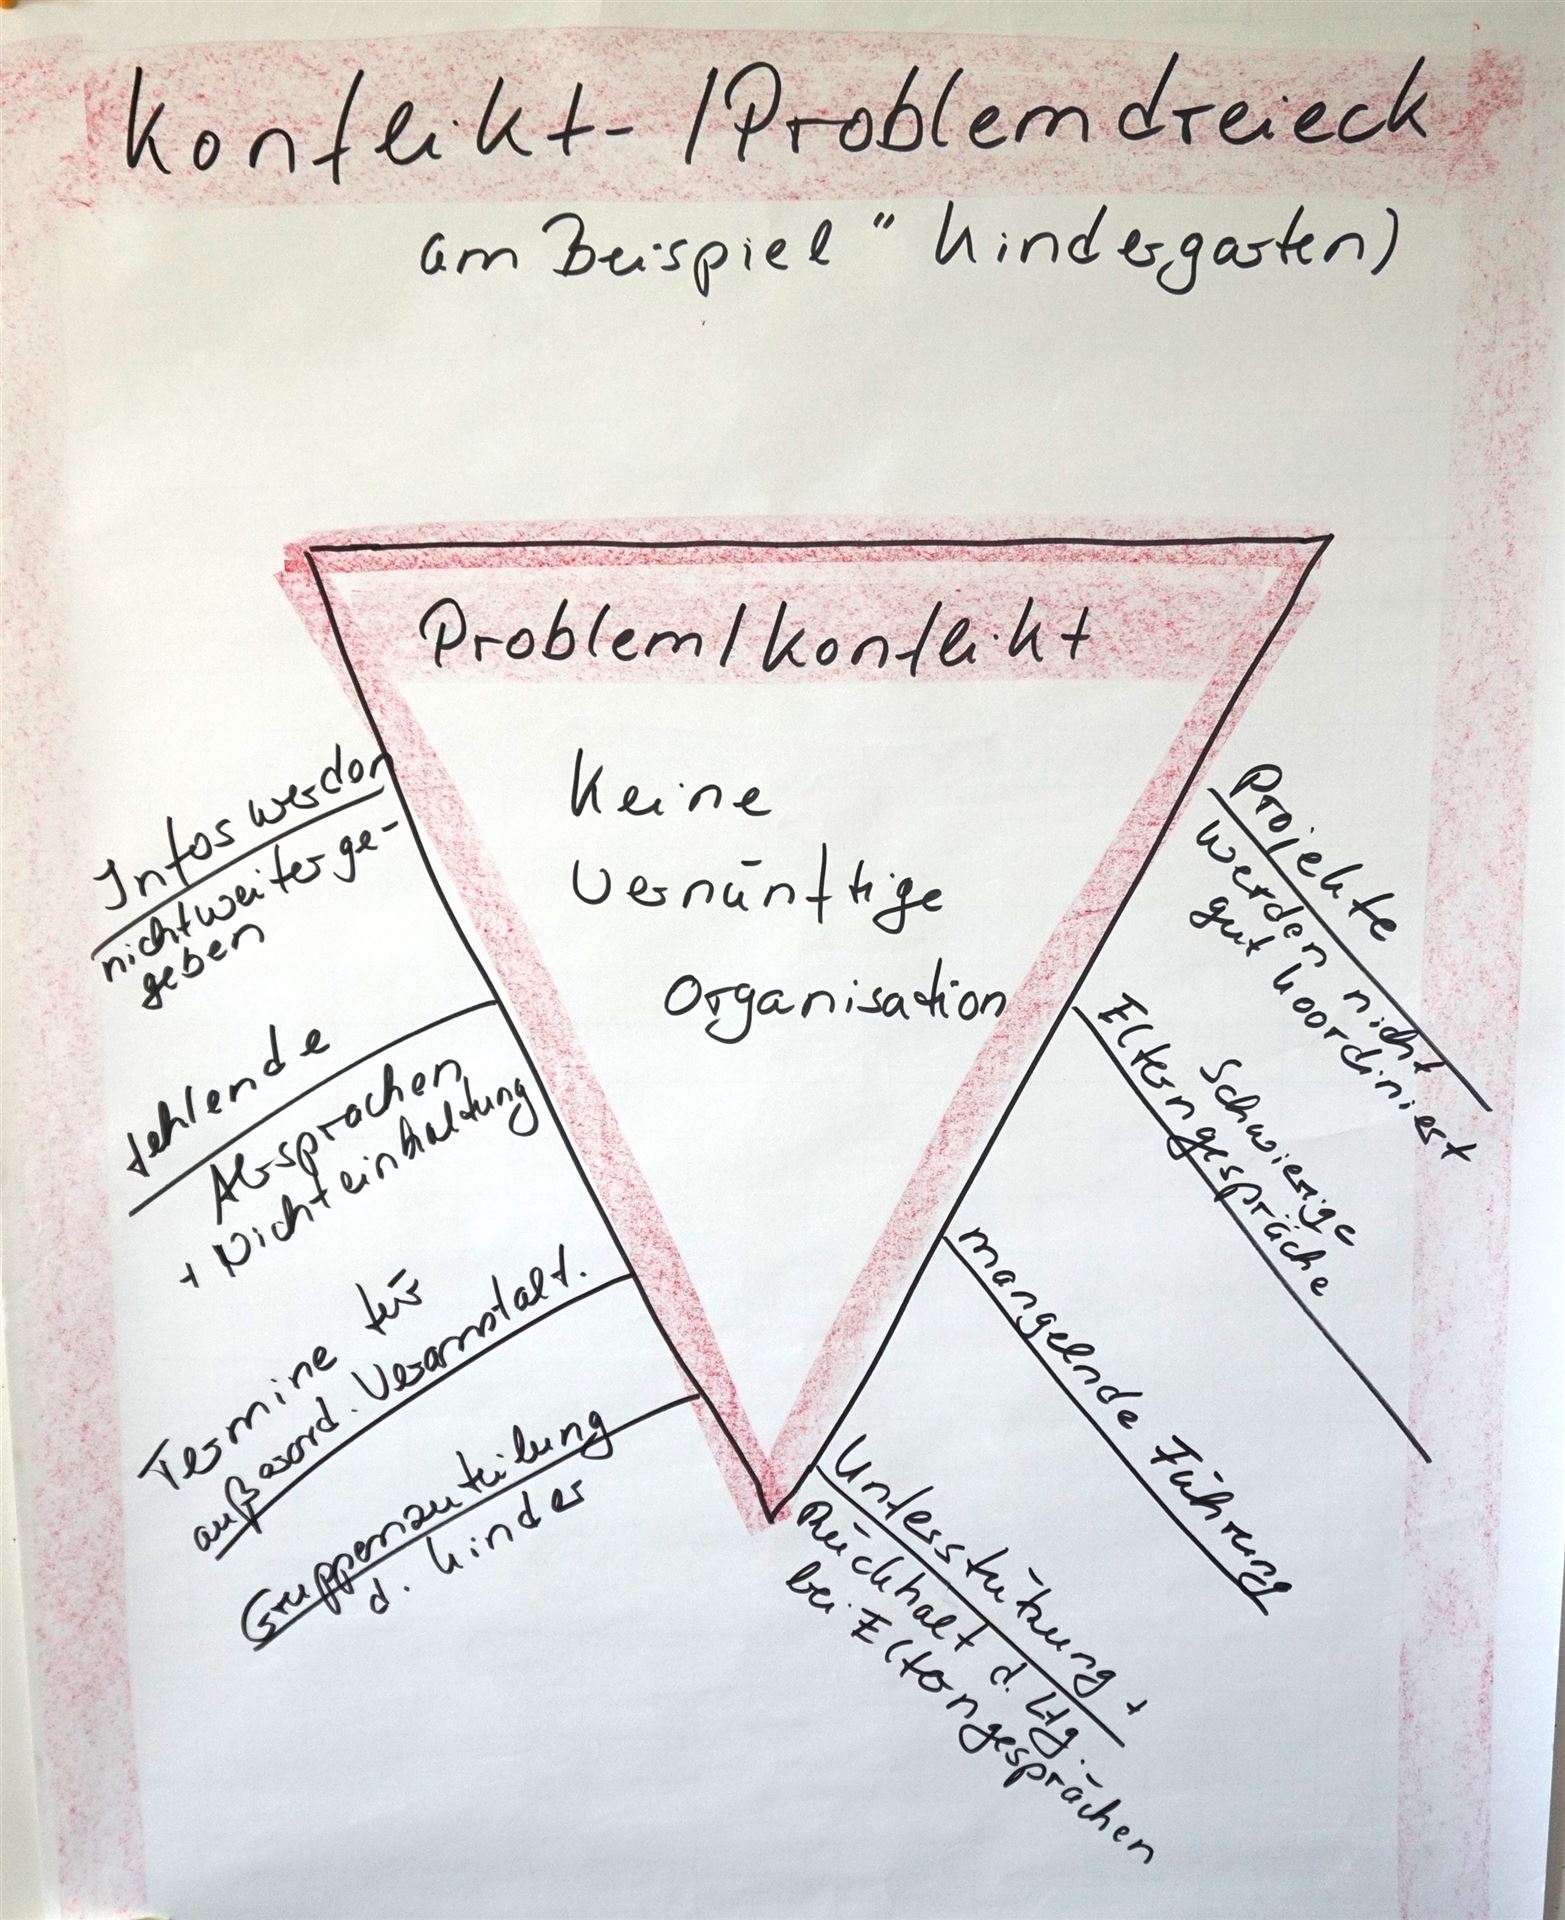 Konflikt-/Problemdreieck
am Beispiel "Kindergarten)
Problem/Konflikt
Keine
Vernünftige
Organisation
Infos werden
nicht weiterge-
geben
fehlende
Absprachen
+ Nichteinhaltung
Termine für
außerord. Veranstalt.
Gruppenzuteilung
d. Kinder
Projekte
werden nicht
gut koordiniert
Schwierige
Elterngespräche
mangelnde Führung
Unterstützung +
Rückhalt d. Ltg.
bei Elterngesprächen